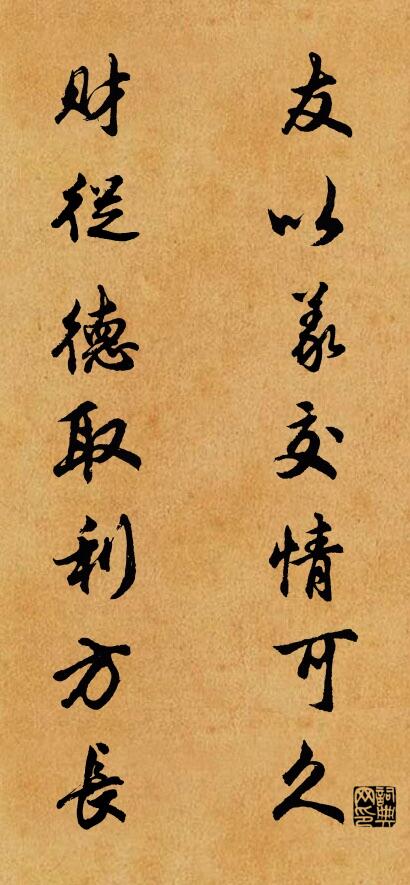 友以義交情可久
財從德取利方長
詞典网印